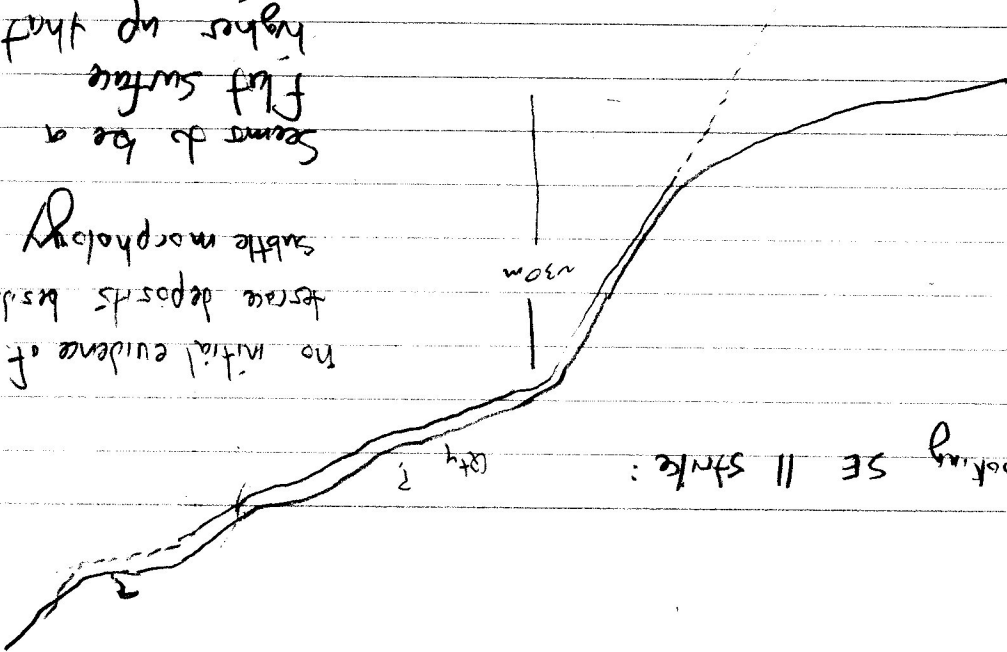 ?
oking SE || strike:
Qty ?
no initial evidence of
terrace deposits besid
subtle morphology
~30m
Seems to be a
flat surface
higher up that